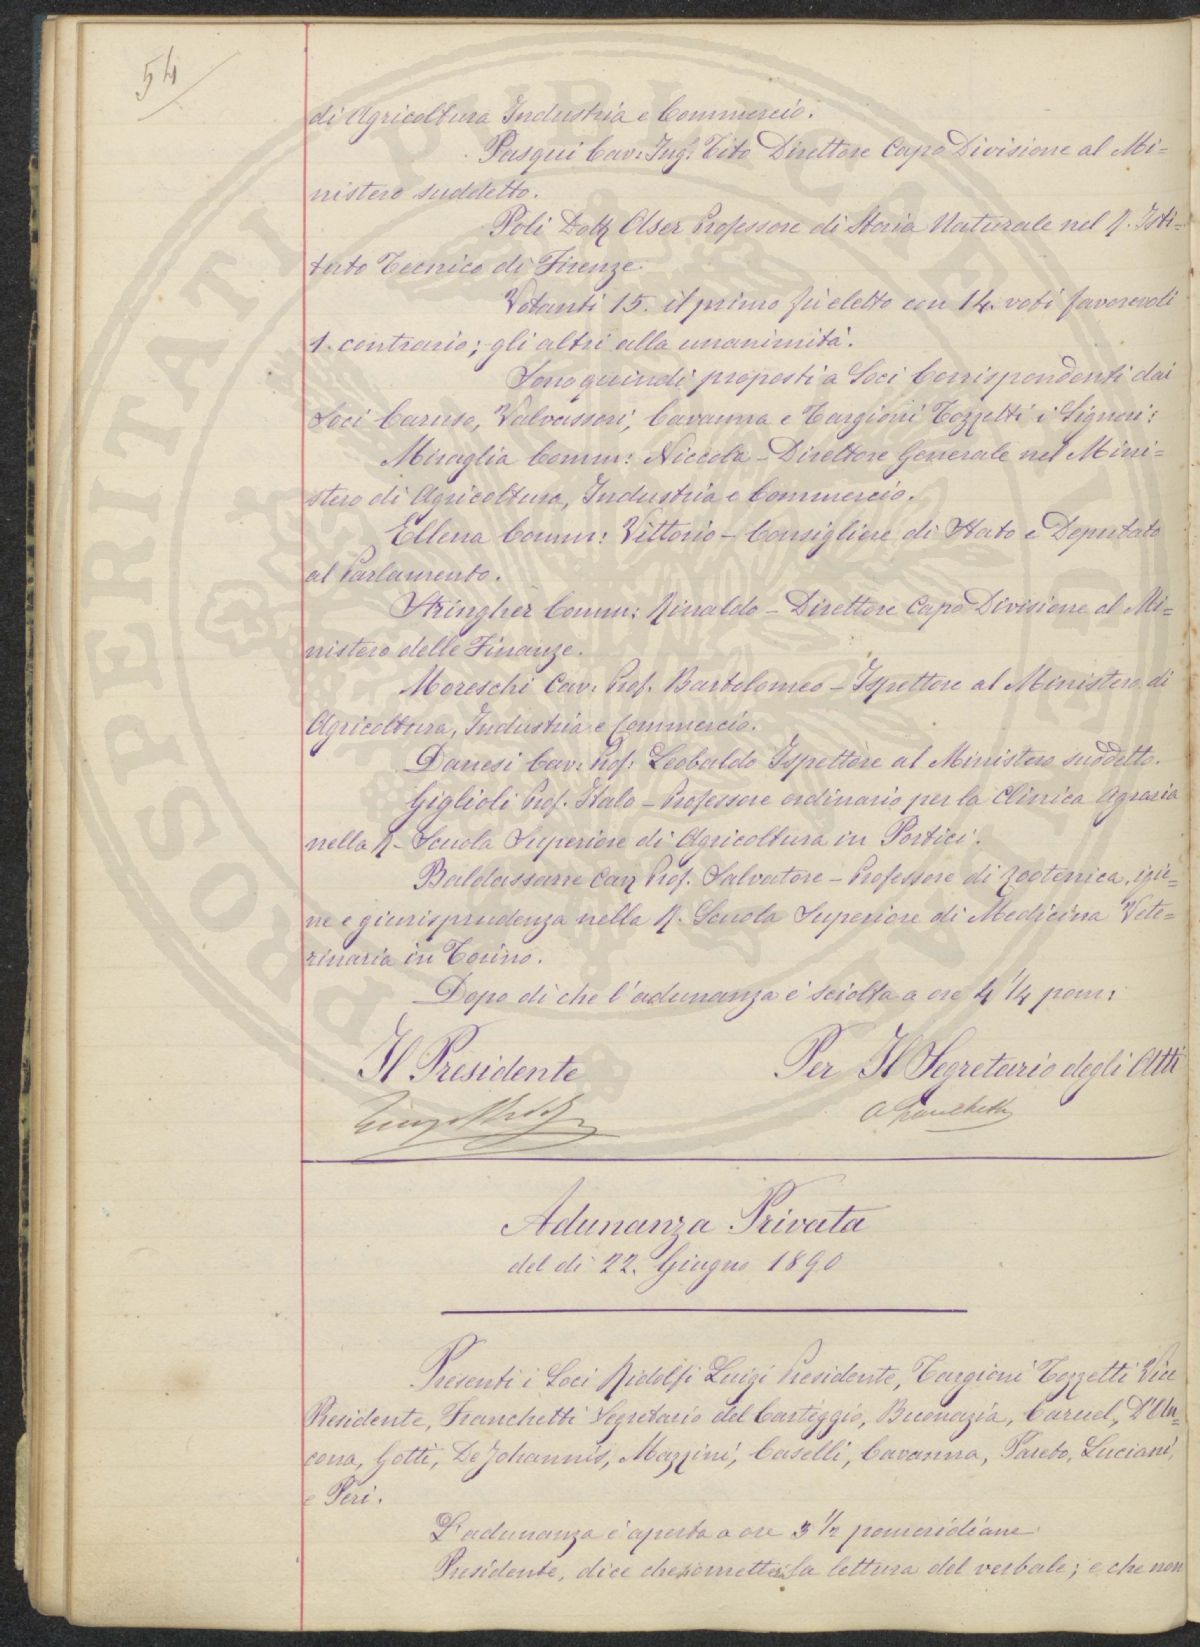 54
di Agricoltura Industria e Commercio.
Pasqui Cav: Ing: Tito Direttore Capo Divisione al Mi=
nistero suddetto.
Poli Dott Aser Professore di Storia Naturale nel R. Isti=
tuto Tecnico di Firenze.
Votanti 15. il primo fu eletto con 14. voti favorevoli
1. contrario; gli altri alla unanimità.
Sono quindi proposti a Soci Corrispondenti dai
Soci Caruso, Valvassori, Cavanna e Targioni Tozzetti i Signori:
Miraglia Comm: Niccola - Direttore Generale nel Mini=
stero di Agricoltura, Industria e Commercio.
Ellena Comm: Vittorio - Consigliere di Stato e Deputato
al Parlamento.
Stringher Comm: Rinaldo - Direttore Capo Divisione al Mi=
nistero delle Finanze.
Moreschi Cav: Prof. Bartolomeo - Ispettore al Ministero di
Agricoltura, Industria e Commercio.
Danesi Cav: Prof: Leobaldo Ispettore al Ministero suddetto.
Giglioli Prof. Italo - Professore ordinario per la Clinica Agraria
nella R. Scuola Superiore di Agricoltura in Portici.
Baldassarre Cav Prof. Salvatore - Professore di zootecnica, igie=
ne e giurisprudenza nella R. Scuola Superiore di Medicina Vete=
rinaria in Torino.
Dopo di che l'adunanza è sciolta a ore 4 1/4 pom:
Il Presidente
Per Il Segretario degli Atti
A Franchetti
Adunanza Privata
del dì 22. Giugno 1890
Presenti i Soci Ridolfi Luigi Presidente, Targioni Tozzetti Vice
Presidente, Franchetti Segretario del Carteggio, Buonazia, Caruel, D'An=
cona, Gotti, De Johannis, Mazzini, Caselli, Cavanna, Pareto, Luciani,
e Peri.
L'adunanza è aperta a ore 3 1/2 pomeridiane.
Presidente, dice che omette la lettura del verbale; e che non
PROSPERITATI PUBLICAE